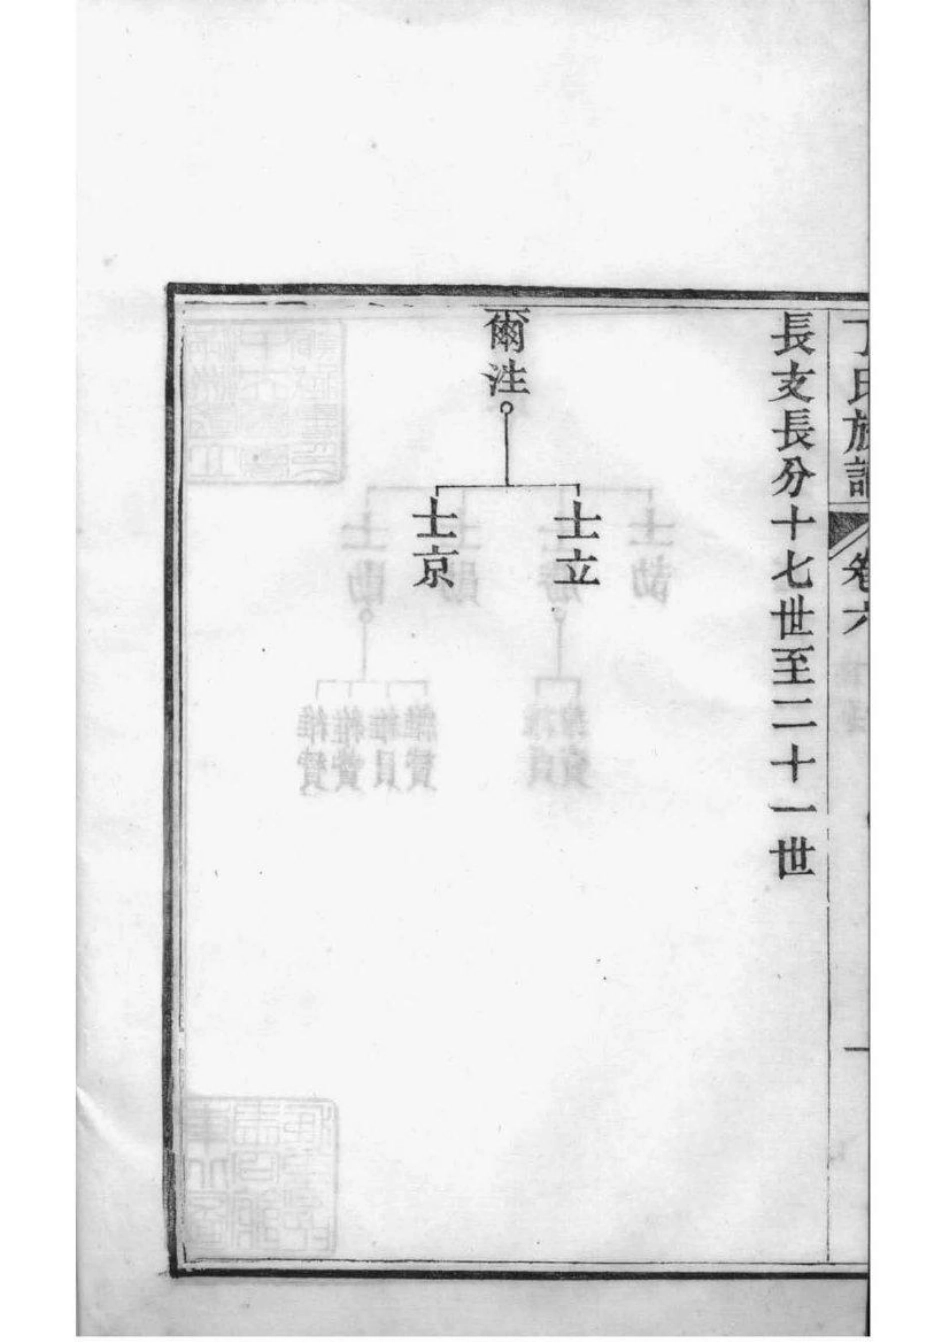 丁氏族譜 卷六
長支長分十七世至二十一世
爾泩
士立
士京